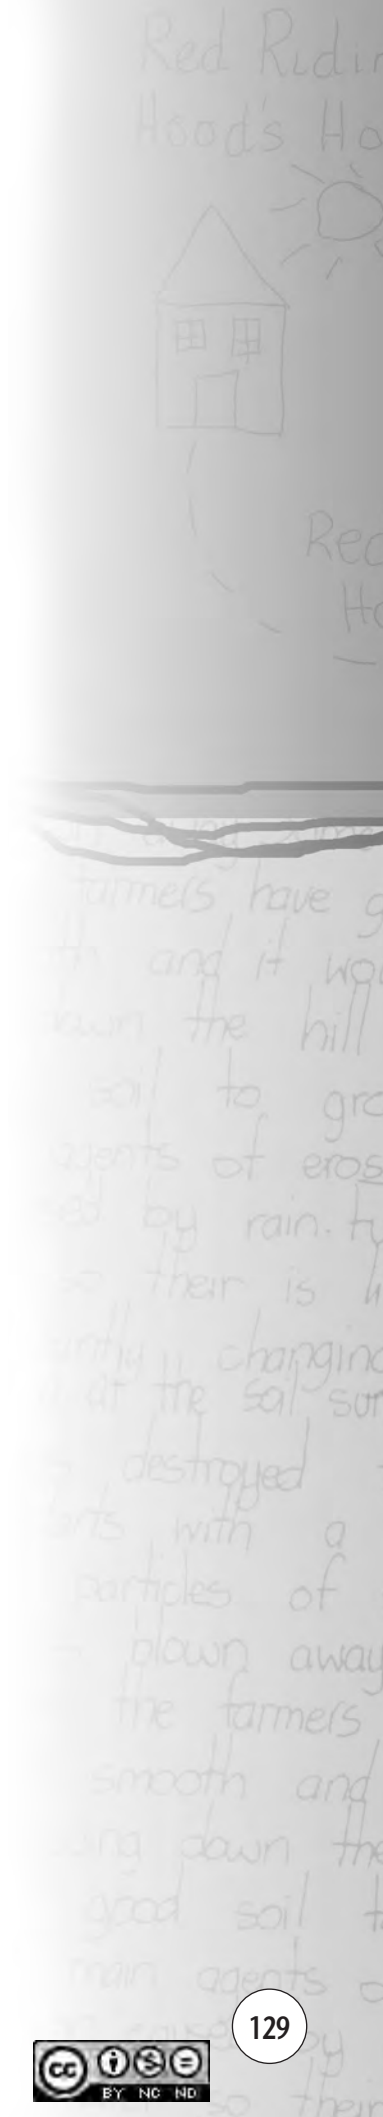 Red Ridin
Hood's Ho
Red
Ho
farmers have g
and it wou
down the hill
soil to gro
agents of eros
by rain. ty
their is li
changing
at the soil sur
destroyed
with a
particles of
blown away
the farmers
smooth and
down the
good soil t
main agents o
129
by
cc
BY NC ND
so their